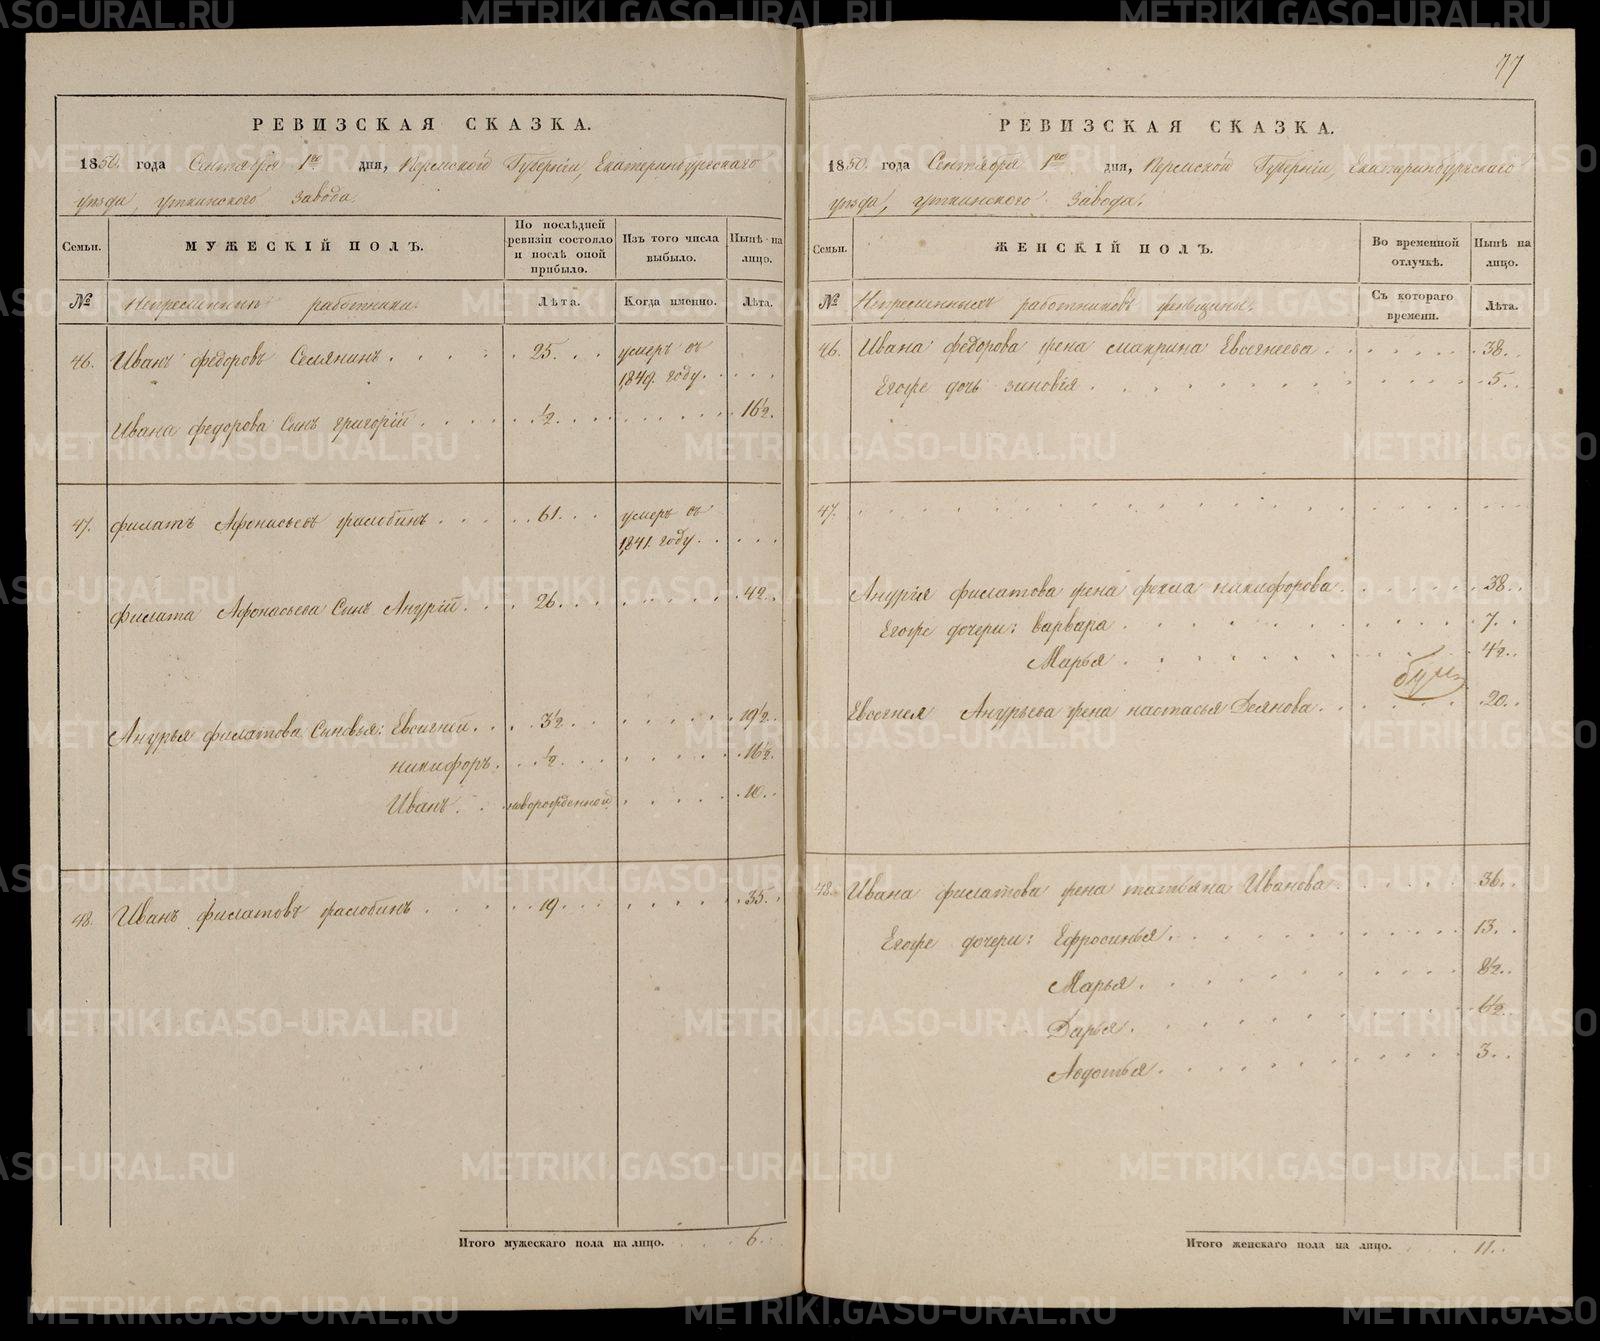 77
РЕВИЗСКАЯ СКАЗКА.
1850. года Сентября 1го дня, Пермской Губернiи, Екатеринбургскаго
уѣзда, Уткинского Завода.
Семьи.
МУЖЕСКIЙ ПОЛЪ.
По послѣдней ревизiи состояло и послѣ оной прибыло.
Изъ того числа выбыло.
Нынѣ на лицо.
№
Непременныи работники.
Лѣта.
Когда именно.
Лѣта.
46. Иванъ Федоровъ Селянинъ . . . . . 25. . . умеръ въ
1849. году. . . . .
Ивана Федорова Сынъ Григорiй . . . . ½. . . . . . . . . 16½.
47. Филатъ Афонасьевъ . . . . . 61. . . умеръ въ
1841. году. . . . .
Филата Афонасьева Сынъ Анурiй . . . 26. . . . . . . . 42. .
Анурья Филатова Сыновья: Евсигней. . . 3½. . . . . . . 19½. .
Никифоръ. . . ½. . . . . . . . 16½.
Иванъ. . . новорожденной . . . . . 10. .
48. Иванъ Филатовъ . . . . . 19. . . . . . . . 35. .
Итого мужескаго пола на лицо. . . . . 6.
РЕВИЗСКАЯ СКАЗКА.
1850. года Сентября 1го дня, Пермской Губернiи, Екатеринбургскаго
уѣзда, Уткинского Завода.
Семьи.
ЖЕНСКIЙ ПОЛЪ.
Во временной отлучкѣ.
Нынѣ на лицо.
№
Непременныхъ работниковъ женщины.
Съ котораго времени.
Лѣта.
46. Ивана Федорова жена Макрина Евсигнеева . . . . . . . 38. .
Егоже дочь Зиновiя . . . . . . . . . . . . . 5. .
47. . . . . . . . . . . . . . . . . .
Анурiя Филатова жена Фекла Никифорова . . . . . . . 38. .
Егоже дочери: Варвара . . . . . . . . . . . 7. .
Марья . . . . . . . . . . . 4½. .
Евсигнея Анурьева жена Настасья Деянова. . . . . . . 20. .
48. Ивана Филатова жена Татьяна Иванова . . . . . . 36. .
Егоже дочери: Ефросинья. . . . . . . . . . . 13. .
Марья . . . . . . . . . . . 8½. .
Дарья. . . . . . . . . . . 6½. .
Авдотья . . . . . . . . . . 3. .
Итого женскаго пола на лицо. . . . . 11. .
METRIKI.GASO-URAL.RU